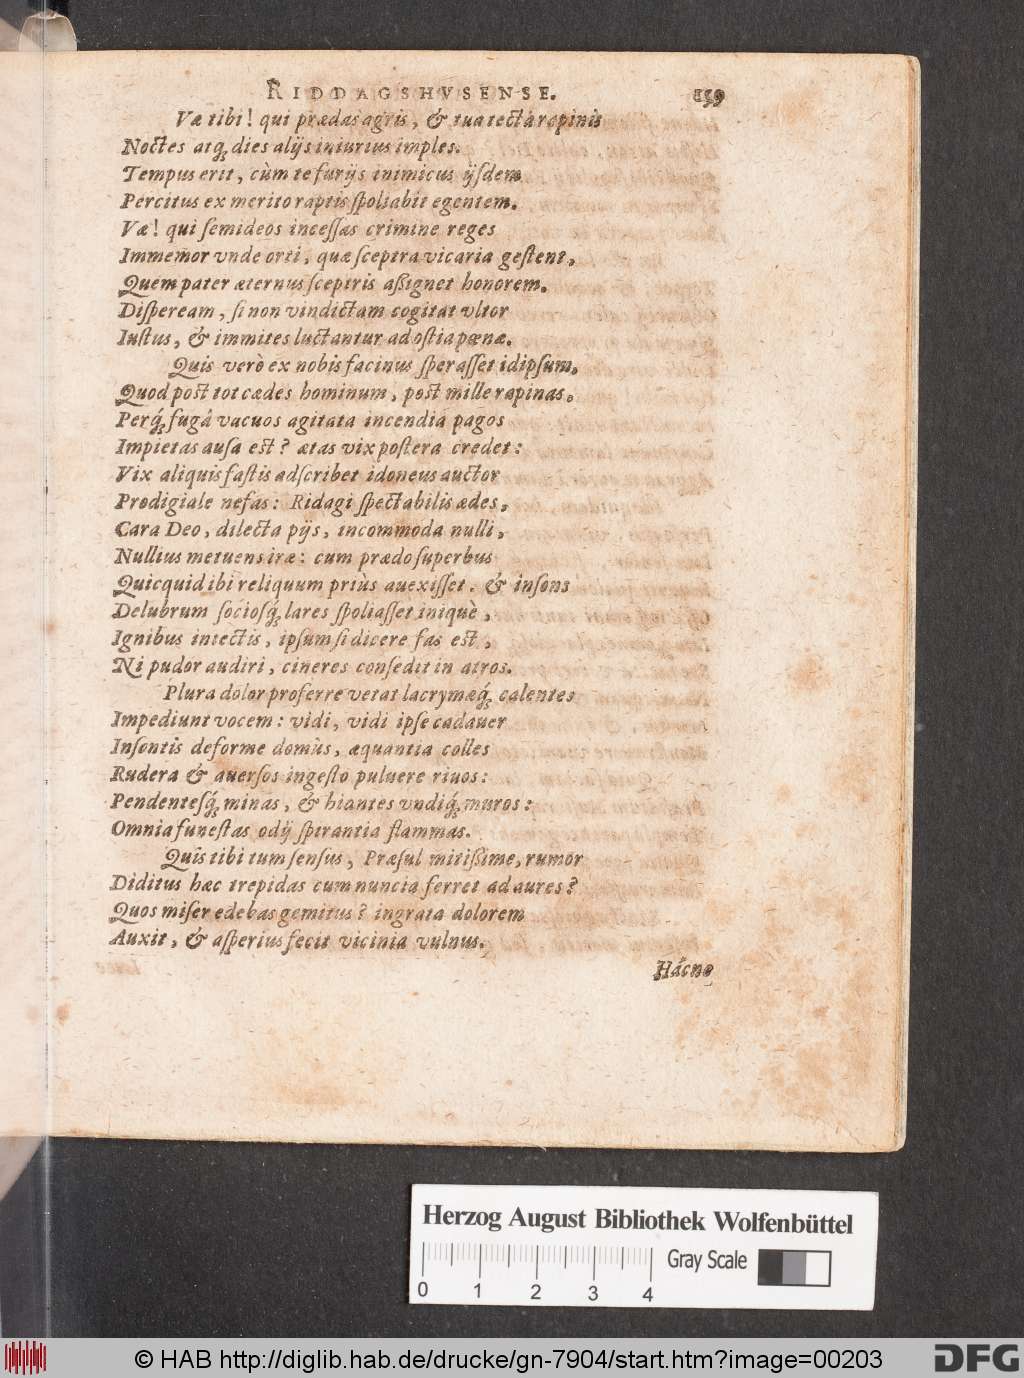 RIDDAGSHVSENSE. 159
Væ tibi! qui prædas agris, & tua tecta rapinis
Noctes atq́; dies alijs iniurius imples.
Tempus erit, cùm te furijs inimicus ijſdem
Percitus ex merito raptis ſpoliabit egentem.
Væ! qui ſemideos inceſſas crimine reges
Immemor vnde orti, quæ ſceptra vicaria geſtent,
Quem pater æternus ſceptris aßignet honorem.
Diſpeream, ſi non vindictam cogitat vltor
Iuſtus, & immites luctantur ad oſtia pœnæ.
Quis verò ex nobis facinus ſperaſſet idipſum,
Quod post tot cædes hominum, post mille rapinas,
Perq́; fugâ vacuos agitata incendia pagos
Impietas auſa est? ætas vix poſtera credet:
Vix aliquis faſtis adſcribet idoneus auctor
Prodigiale nefas: Ridagi ſpectabilis ædes,
Cara Deo, dilecta pijs, incommoda nulli,
Nullius metuens iræ: cum prædo ſuperbus
Quicquid ibi reliquum priùs auexiſſet. & inſons
Delubrum ſocioſq́; lares ſpoliaſſet iniquè,
Ignibus iniectis, ipſum ſi dicere fas est,
Ni pudor audiri, cineres conſedit in atros.
Plura dolor proferre vetat lacrymæq́; calentes
Impediunt vocem: vidi, vidi ipſe cadauer
Inſontis deforme domûs, æquantia colles
Rudera & auerſos ingeſto puluere riuos:
Pendenteſq́; minas, & hiantes vndiq́; muros:
Omnia funeſtas odij ſpirantia flammas.
Quis tibi tum ſenſus, Præſul mitißime, rumor
Diditus hæc trepidas cum nuncia ferret ad aures?
Quos miſer edebas gemitus? ingrata dolorem
Auxit, & aſperius fecit vicinia vulnus.
Hâcne
Herzog August Bibliothek Wolfenbüttel
0 1 2 3 4 Gray Scale
© HAB http://diglib.hab.de/drucke/gn-7904/start.htm?image=00203
DFG